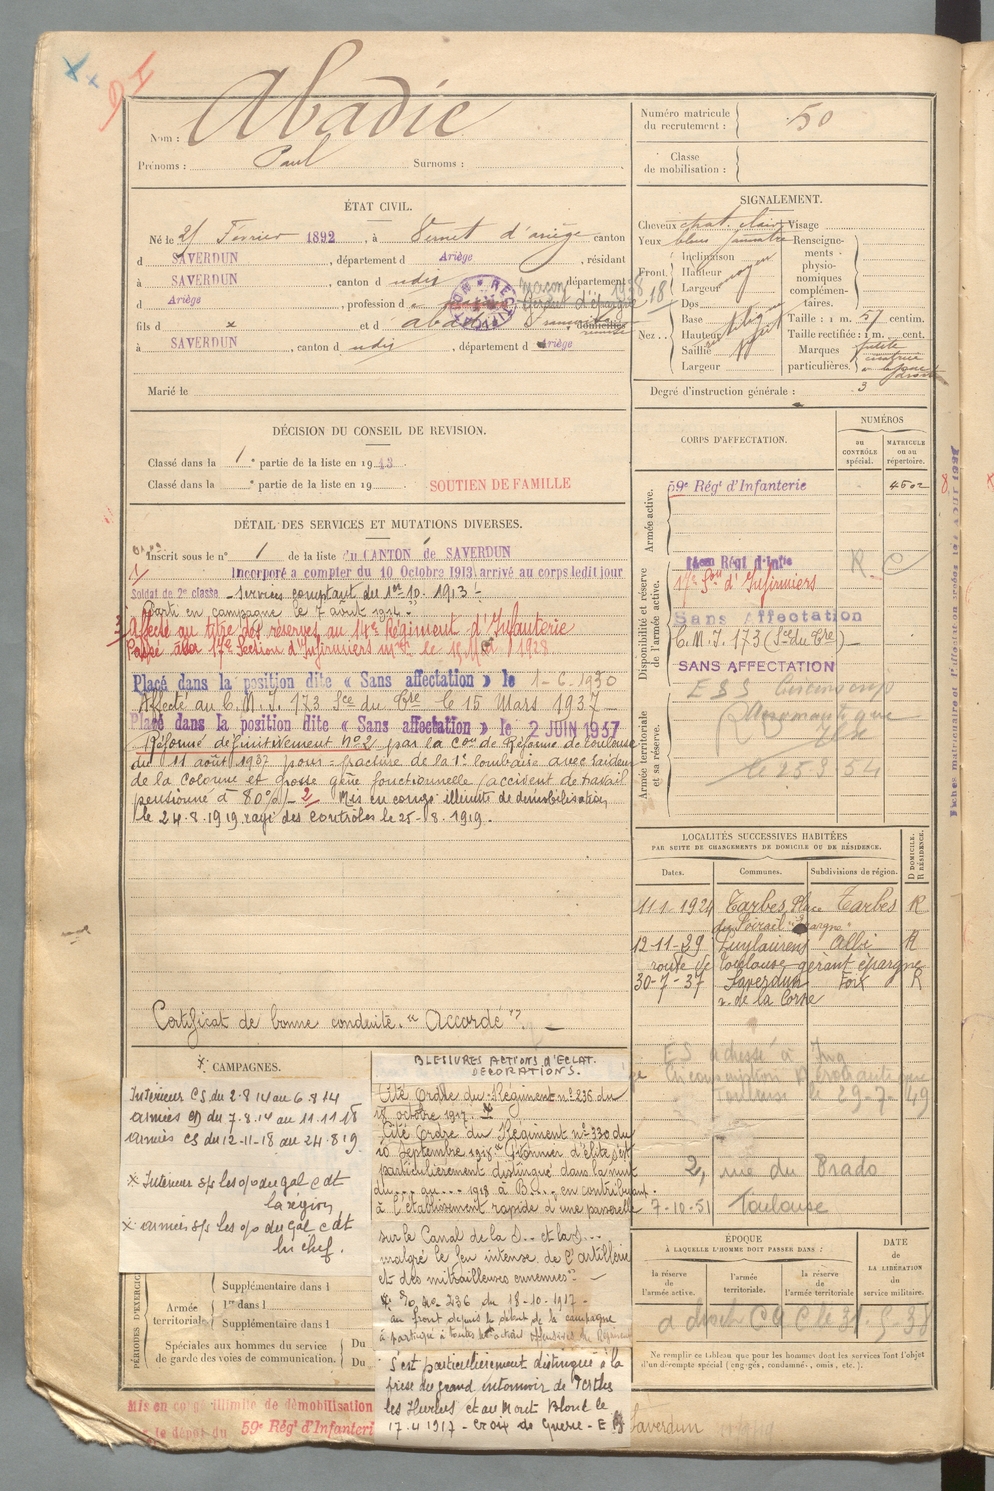 Nom : Abadie
Prénoms : Paul Surnoms :
ÉTAT CIVIL.
Né le 21 Février 1892, à Vernet d'ariège canton
d SAVERDUN, département d Ariège, résidant
à SAVERDUN, canton d udis, département
d Ariège, profession d
fils d x et d abadie domiciliés
à SAVERDUN, canton d udis, département d Ariège
Marié le
DÉCISION DU CONSEIL DE REVISION.
Classé dans la 1e partie de la liste en 1913.
Classé dans la e partie de la liste en 19 SOUTIEN DE FAMILLE
DÉTAIL DES SERVICES ET MUTATIONS DIVERSES.
Inscrit sous le n° 1 de la liste du CANTON de SAVERDUN
Incorporé a compter du 10 Octobre 1913 arrivé au corps ledit jour
Soldat de 2e classe - Services comptant du 1er 10. 1913 -
Parti en campagne le 7 août 1914 -
Affecté au titre des réserves au 14e Régiment d'Infanterie
Passé à la 17e Section d'Infirmiers mres le 1928
Placé dans la position dite « Sans affectation » le 1-6-1930
Affecté au C.M.I. 173 Sce du Cre le 15 Mars 1937 -
Placé dans la position dite « Sans affectation » le 2 JUIN 1937
Réformé définitivement n° 2 par la Con de Réforme de Toulouse
du 11 août 1937 pour : fracture de la 1e lombaire avec raideur
de la colonne et grosse gêne fonctionnelle (accident de travail
pensionné à 80%) - 2 Mis en congé illimité de démobilisation
le 24.8.1919 rayé des controles le 25-8.1919.
Certificat de bonne conduite. "Accordé" -
* CAMPAGNES.
Intérieur CS du 2.8.14 au 6.8.14
armées CD du 7.8.14 au 11.11.18
armées CS du 12-11-18 au 24.8.19
* Intérieur s/s les o/ du gal cdt
la région
* armées s/s les o/ du gal cdt
en chef.
PÉRIODES D'EXERCICES
Armée territoriale
Supplémentaire dans l
1re dans l
Supplémentaire dans l
Spéciales aux hommes du service
de garde des voies de communication.
Du
Du
Mis en congé illimité de démobilisation
le dépôt du 59e Régt d'Infanterie
BLESSURES ACTIONS D'ECLAT.
DECORATIONS.
Cité Ordre du Régiment n° 236 du
18 octobre 1917. *
Cité Ordre du Régiment n° 330 du
10 Septembre 1918 "Pionnier d'élite s'est
particulièrement distingué dans la nuit
du... au... 1918 à B..., en contribuant
à l'établissement rapide d'une passerelle
sur le Canal de la S... et la S...
malgré le feu intense de l'artillerie
et des mitrailleuses ennemies" -
* O/ n° 236 du 18-10-1917 -
au front depuis le début de la campagne
a participé à toutes les actions offensives du Régiment
S'est particulièrement distingué à la
prise du grand entonnoir de Perthes
les Hurlus et au Mont Blond le
17.4.1917 - Croix de Guerre - E B
Saverdun
Numéro matricule
du recrutement : 50
Classe
de mobilisation :
SIGNALEMENT.
Cheveux chat. clair Visage
Yeux bleus
Front. Inclinaison
Hauteur moyen
Largeur
Nez.. Dos
Base
Hauteur
Saillie
Largeur
Renseignements physionomiques complémentaires.
Taille : 1 m. 57 centim.
Taille rectifiée : 1 m. cent.
Marques particulières. petite cicatrice
Degré d'instruction générale : 3
CORPS D'AFFECTATION.
NUMÉROS
au CONTRÔLE spécial.
MATRICULE ou au répertoire.
Armée active.
59e Régt d'Infanterie 4502
Disponibilité et réserve de l'armée active.
14em Régt d'Inftie R C
17e Son d'Infirmiers
Sans Affectation
C.M.I. 173 (Sce du Cre) -
SANS AFFECTATION
Armée territoriale et sa réserve.
le 25 3 54
LOCALITÉS SUCCESSIVES HABITÉES
PAR SUITE DE CHANGEMENTS DE DOMICILE OU DE RÉSIDENCE.
Dates. Communes. Subdivisions de région. D DOMICILE. R RÉSIDENCE.
11 1. 1924 Tarbes Place Tarbes R
du Foirail "Epargne"
12-11-29 Puylaurens Albi R
route de Toulouse gérant épargne
30-7-37 Saverdun Foix R
r. de la Corse
Toulouse le 29-7-49
2, rue du Prado
7-10-51 Toulouse
ÉPOQUE
À LAQUELLE L'HOMME DOIT PASSER DANS :
la réserve de l'armée active.
l'armée territoriale.
la réserve de l'armée territoriale
DATE de LA LIBÉRATION du service militaire.
Ne remplir ce tableau que pour les hommes dont les services font l'objet
d'un décompte spécial (engagés, condamnés, omis, etc.).